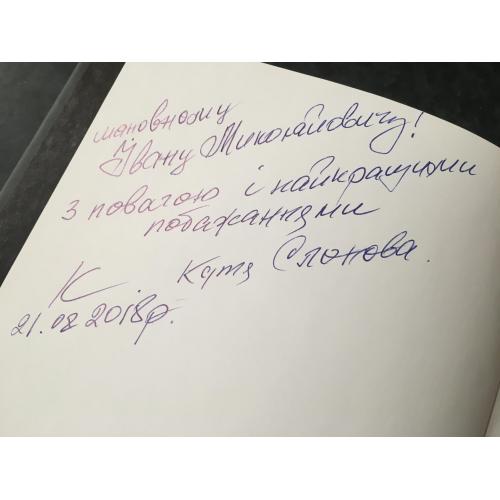 шановному
Івану Миколайовичу!
З повагою і найкращими
побажаннями
К. Катя Слонова.
21.08 2018р.